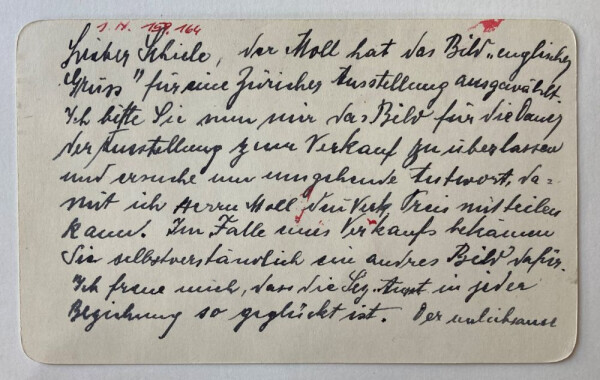 1. N. 158. 164
Lieber Schiele, der Moll hat das Bild „englischer
Gruss" für eine Züricher Ausstellung ausgewählt.
Ich bitte Sie nun mir das Bild für die Dauer
der Ausstellung zum Verkauf zu überlassen
und ersuche um umgehende Antwort, da=
mit ich Herrn Moll den Verk. Preis mitteilen
kann. Im Falle eines Verkaufs bekämen
Sie selbstverständlich ein andres Bild dafür.
Ich freue mich, dass die in jeder
Beziehung so geglückt ist. Der